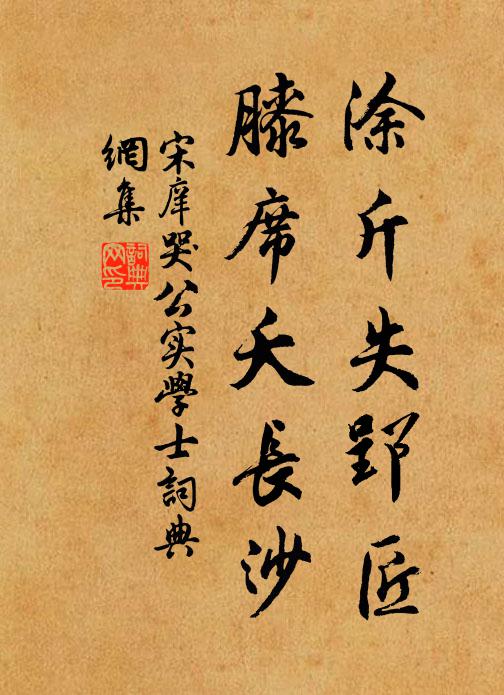 涂斤失郢匠
膝席夭長沙
宋庠哭公实學士詞典
網集
詞典網印